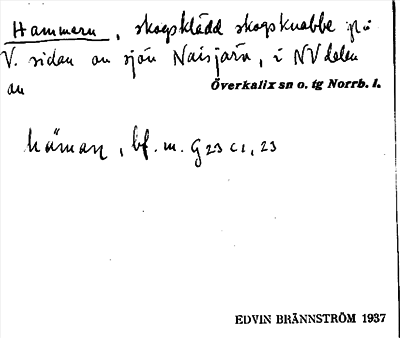 Hammern, skogsklädd skogsknabbe på
V. sidan av sjön Naisjärv, i NV delen
av Överkalix sn o. tg Norrb. l.
häman, bf. m. G 23 c1, 23
EDVIN BRÄNNSTRÖM 1937